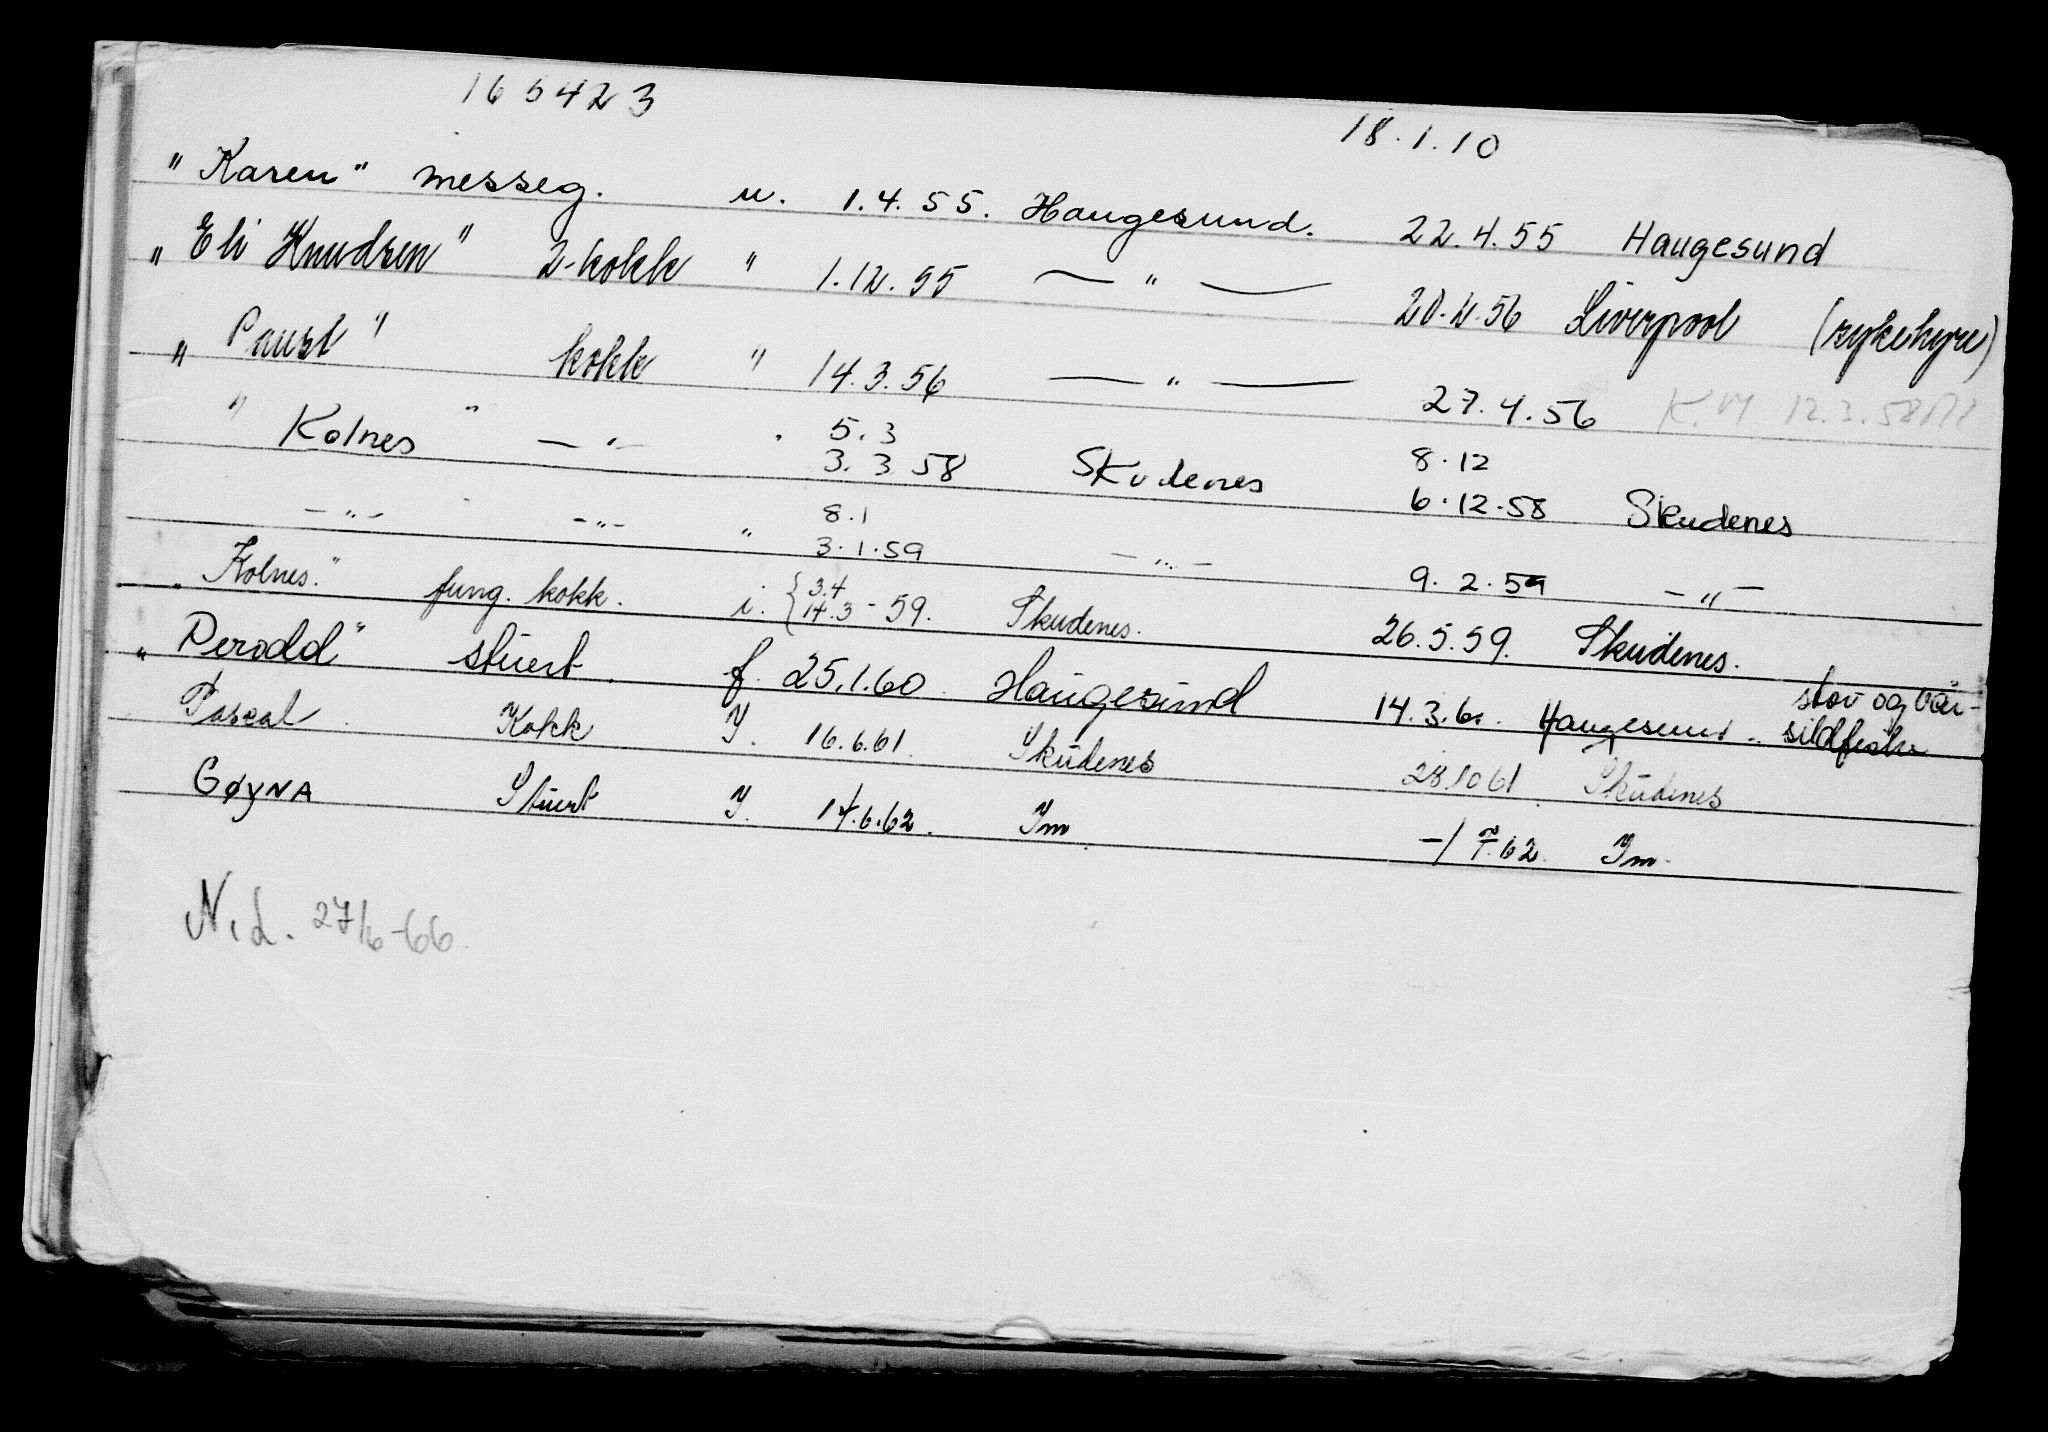 165423 18.1.10
"Karen" messeg. u. 1.4.55. Haugesund. 22.4.55 Haugesund
"Eli Knudsen" 2-kokk " 1.12.55 — " — 20.4.56 Liverpool (sykehyre)
"Paust" kokk " 14.3.56 — " — 27.4.56 12.3.58
5.3 8.12
"Kolnes" — " — " 3.3 58 Skudenes 6.12.58 Skudenes
8.1
— " — — " — " 3.1.59 — " — 9.2.59 — " —
3.4
"Kolnes." fung. kokk. i. { 14.3 - 59. Skudenes. 26.5.59. Skudenes. stor og vår-
"Perodd" stuert. f. 25.1.60 Haugesund 14.3.60. Haugesund sildfiske
Pascal Kokk Y. 16.6.61. Skudenes 28.10 61. Skudenes
GØYNA Stuert Y. 14.6.62. Ym -/7.62. Ym.
N.L. 27/6-66.